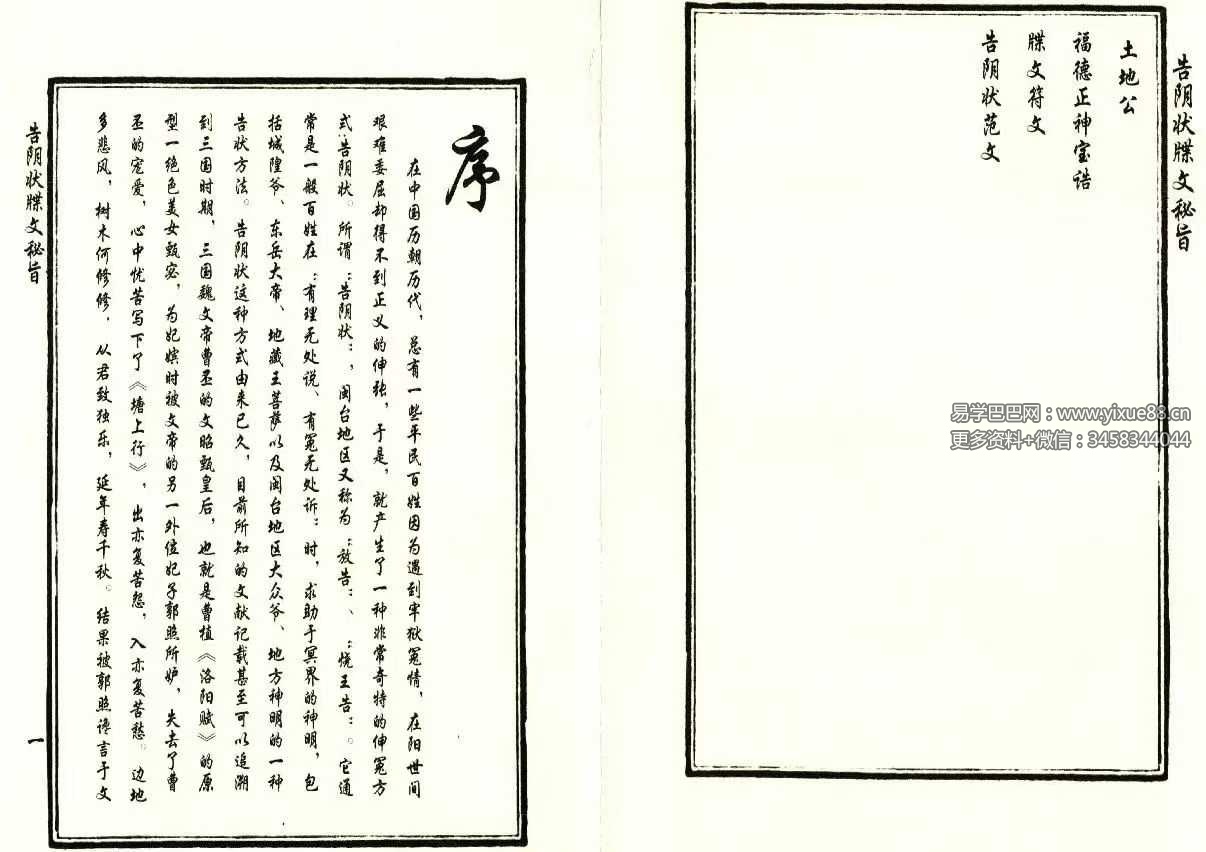 告阴状牒文秘旨
土地公
福德正神宝诰
牒文符文
告阴状范文
易学巴巴网：www.yixue88.cn
更多资料+微信：3458344044
序
在中国历朝历代，总有一些平民百姓因为遇到牢狱冤情，在阳世间
艰难委屈却得不到正义的伸张，于是，就产生了一种非常奇特的伸冤方
式：告阴状。所谓：告阴状：，闽台地区又称为：放告：、：恍王告：。它通
常是一般百姓在：有理无处说、有冤无处诉：时，求助于冥界的神明，包
括城隍爷、东岳大帝、地藏王菩萨以及闽台地区大众爷、地方神明的一种
告状方法。告阴状这种方式由来已久，目前所知的文献记载甚至可以追溯
到三国时期，三国魏文帝曹丕的文昭甄皇后，也就是曹植《洛阳赋》的原
型一绝色美女甄宓，为妃嫔时被文帝的另一外位妃子郭照所妒，失去了曹
丕的宠爱，心中忧苦写下了《塘上行》，出亦复苦怨，入亦复苦愁。边地
多悲风，树木何修修，从君致独乐，延年寿千秋。结果被郭照谗言于文
告阴状牒文秘旨
一